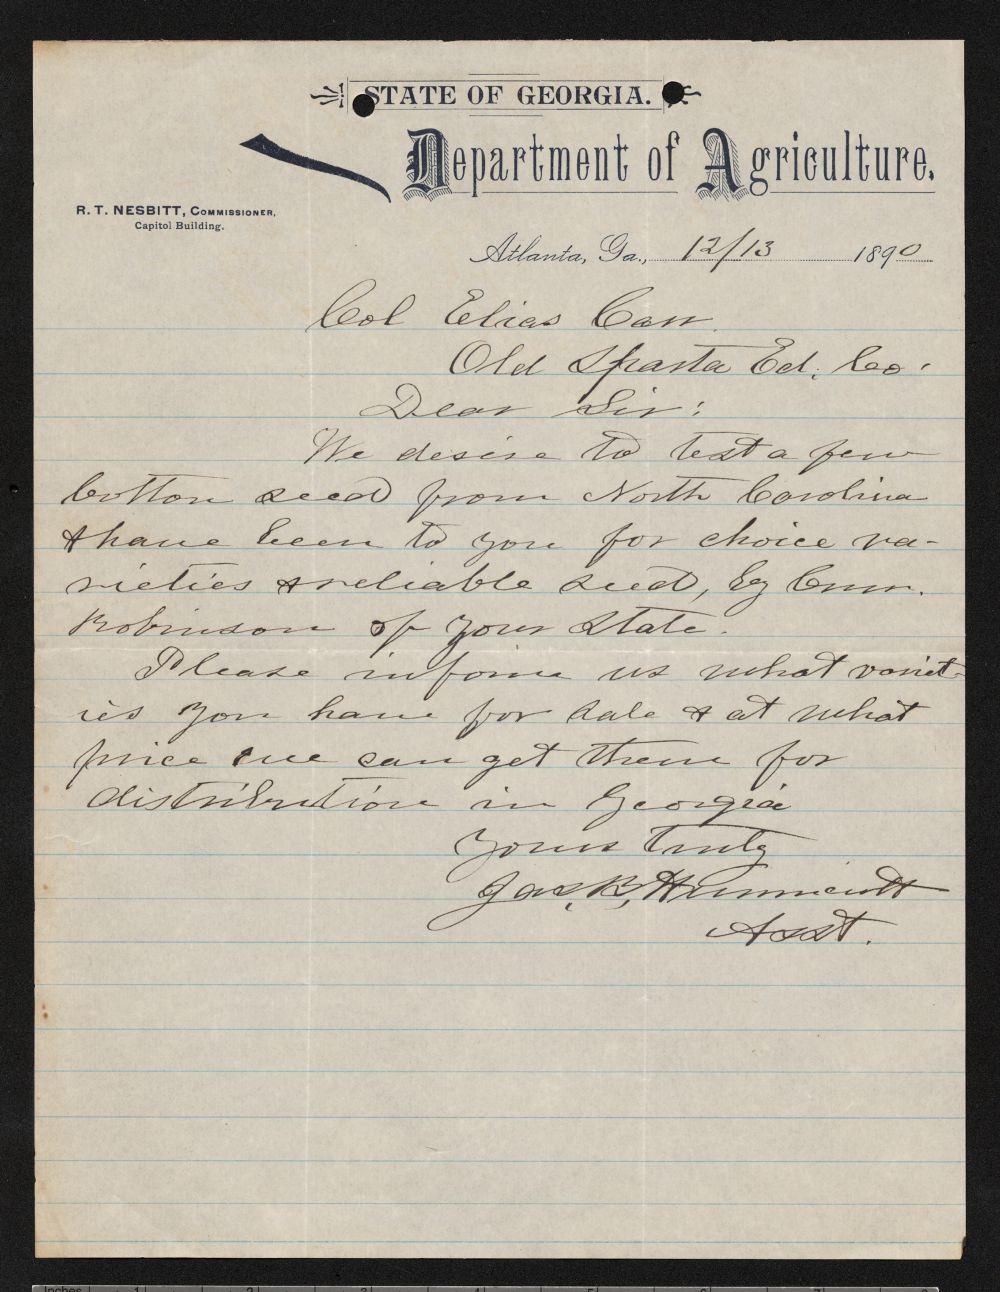 STATE OF GEORGIA.
Department of Agriculture.
R. T. NESBITT, COMMISSIONER,
Capitol Building.
Atlanta, Ga., 12/13 1890
Col Elias Carr
Old Sparta Ed. Co.
Dear Sir:
We desire to test a few
Cotton seed from North Carolina
& have been to you for choice va-
rieties & reliable seed, by Com.
Robinson of your State.
Please inform us what variet-
ies you have for sale & at what
price we can get them for
distribution in Georgia
Yours truly
Jas. B. Hunnicutt
Asst.
Inches 1 2 3 4 5 6 7 8